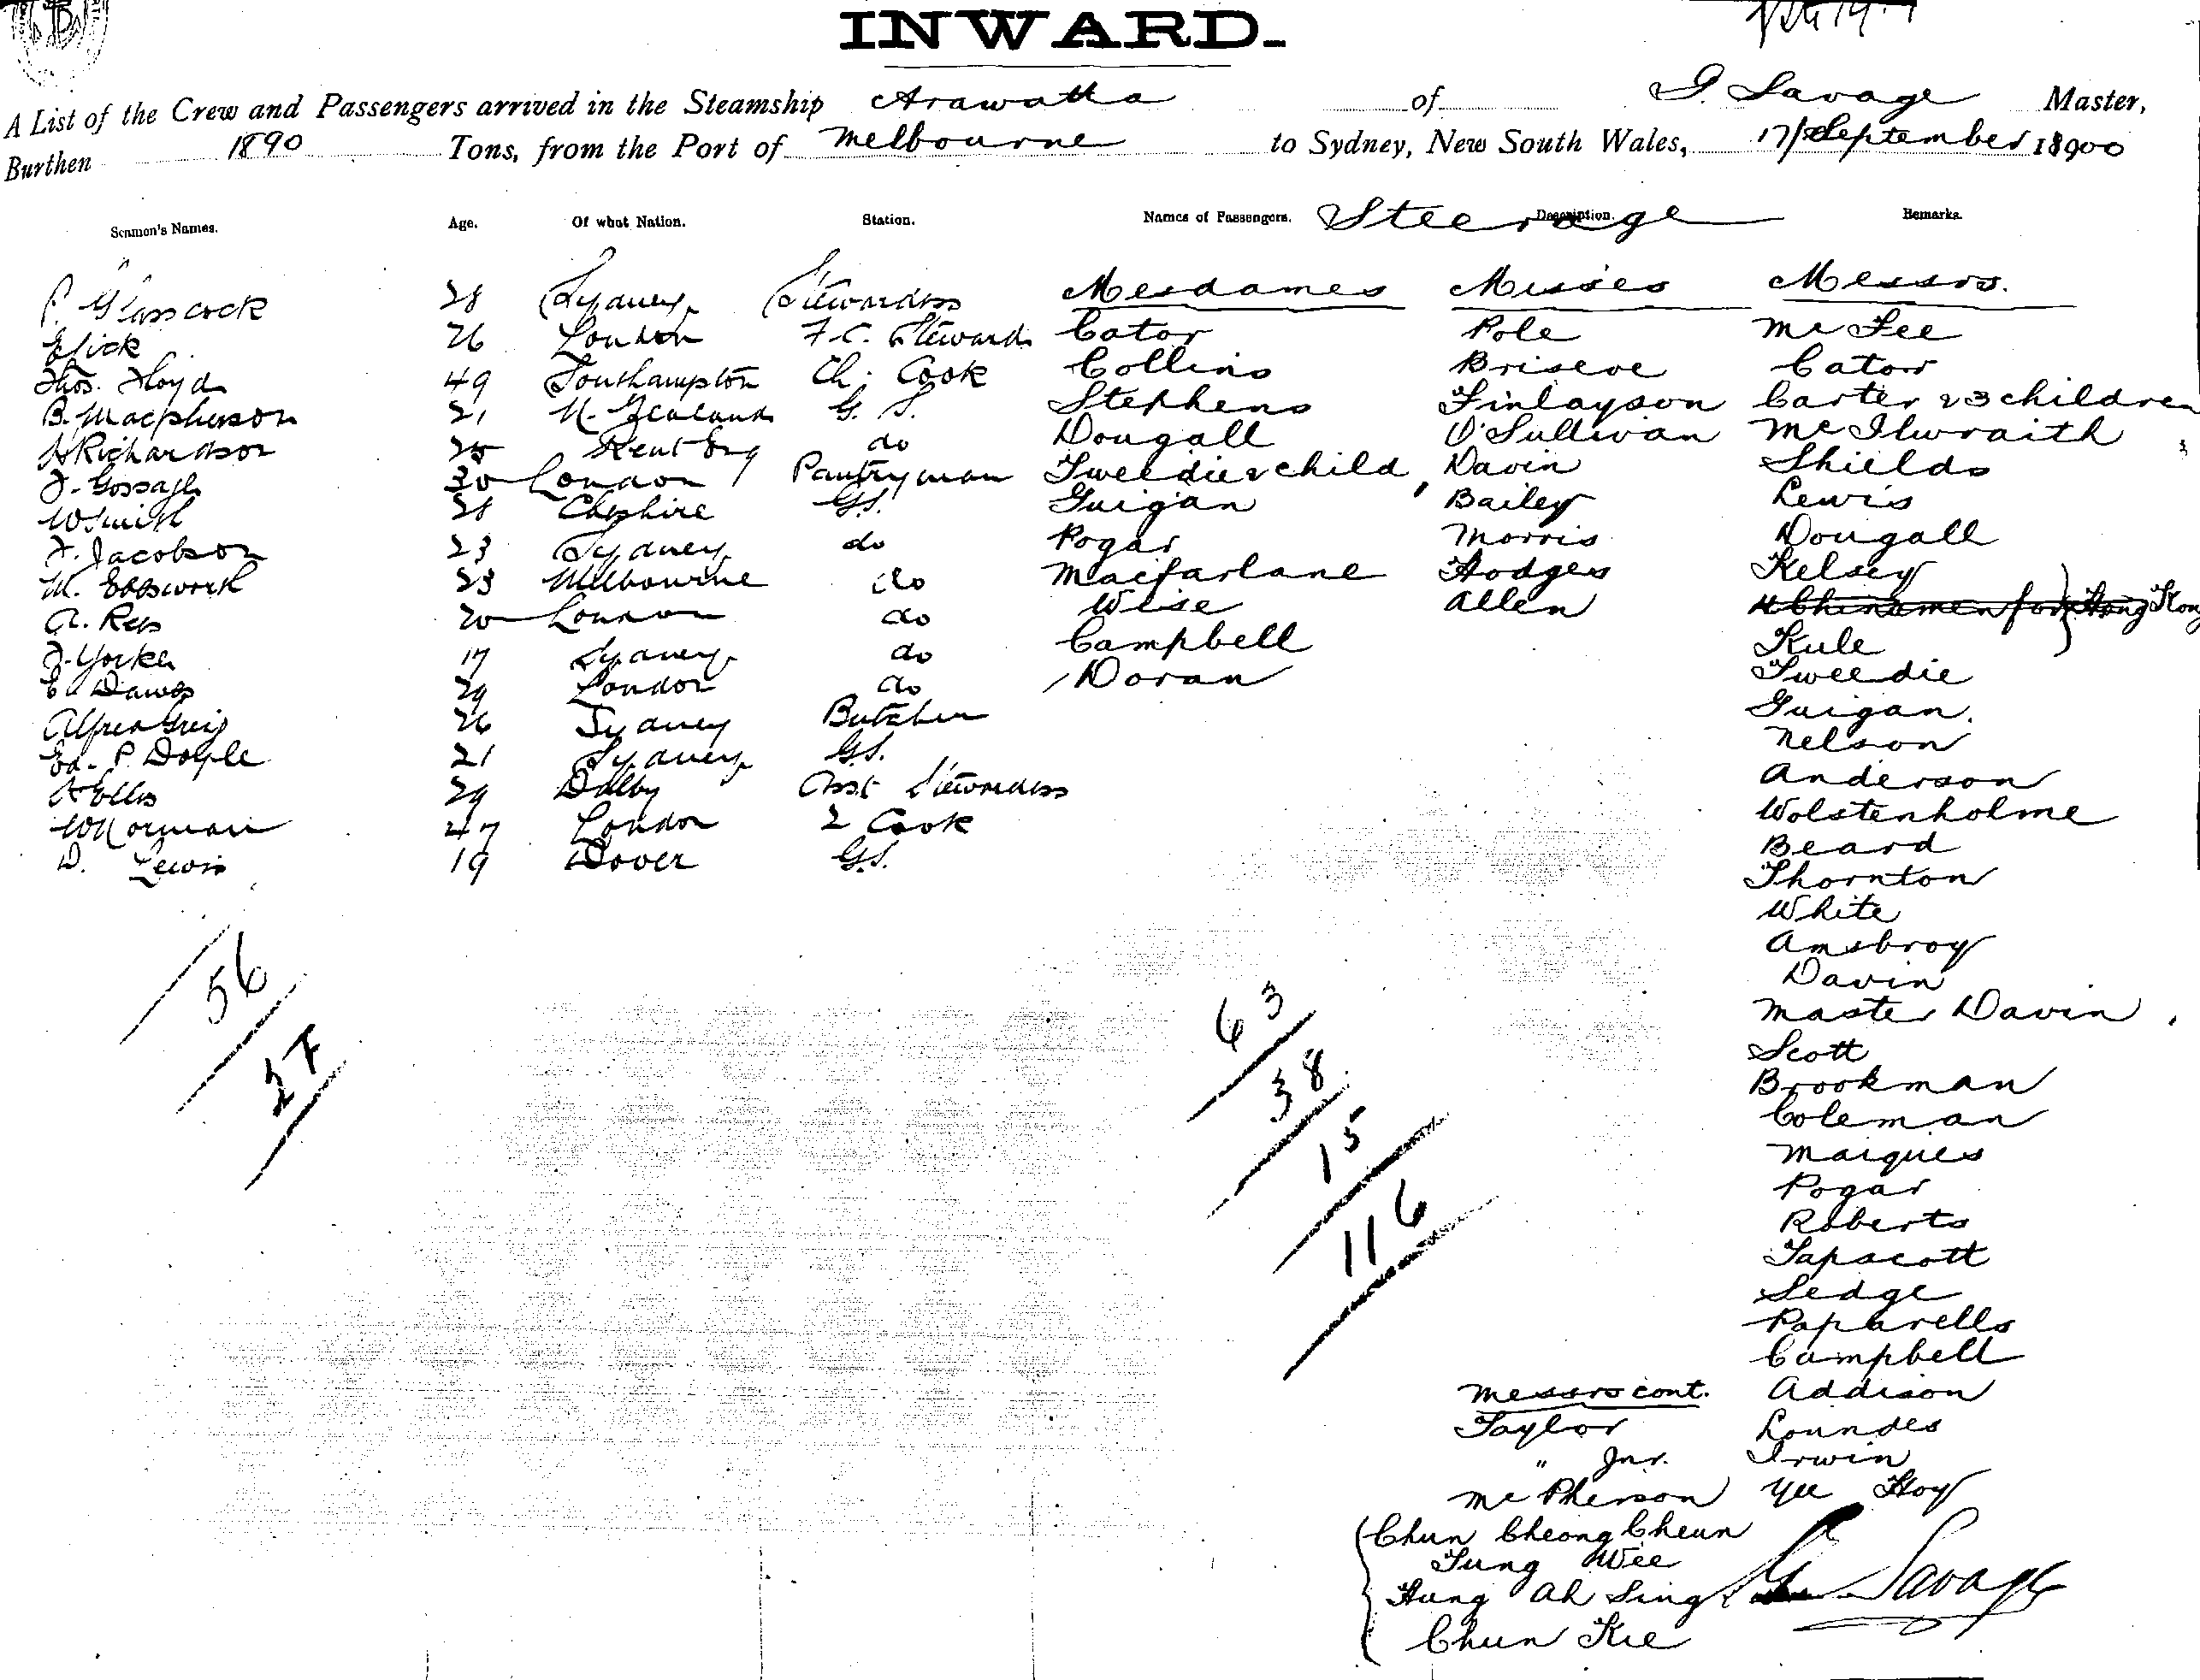 INWARD.
A List of the Crew and Passengers arrived in the Steamship Arawatta of G. Savage Master,
Burthen 1890 Tons, from the Port of Melbourne to Sydney, New South Wales, 17/September 18900
Seamen's Names. Age. Of what Nation. Station. Names of Passengers. Steerage Description. Remarks.
P. Glasscock 28 Sydney Stewardess Mesdames Misses Messrs.
Elick 26 London F.C. Steward Cator Pole McFee
Thos. Floyd 49 Southampton Ch. Cook Collins Briseoe Cator
B. Macpherson 21 N. Zealand G.S. Stephens Finlayson Carter & 3 children
H Richardson 25 Kent Eng do Dougall O'Sullivan McIlwraith
J. Gossage 30 London Pantryman Tweedie & child, Davin Shields
W Smith 28 Cheshire G.S. Guigan Bailey Lewis
J. Jacobson 23 Sydney do Pogar Morris Dougall
M. Ebbsworth 23 Melbourne do Macfarlane Hodges Kelsey
A. Rees 20 London do Wise Allen 4 Chinamen for Hong Kong
J. Yorke 17 Sydney do Campbell Kule
E. Dawes 29 London do Doran Tweedie
Alfred Greig 26 Sydney Butcher Guigan.
Ed. P. Doyle 21 Sydney G.S. Nelson
H Ellis 29 Dalby Asst Stewardess Anderson
W Norman 47 London 2 Cook Wolstenholme
D. Lewis 19 Dover G.S. Beard
Thornton
White
Amsbroy
Davin
Master Davin
Scott
Brookman
Coleman
Maigues
Pogar
Roberts
Tapscott
Sedge
Paparells
Campbell
56
27
63
38
15
116
Messrs cont. Addison
Taylor Loundes
" Jnr. Irwin
McPherson Yee Hoy
Chun Cheong Cheun
Tung Wee
Hung Ah Sing G. Savage
Chun Kee